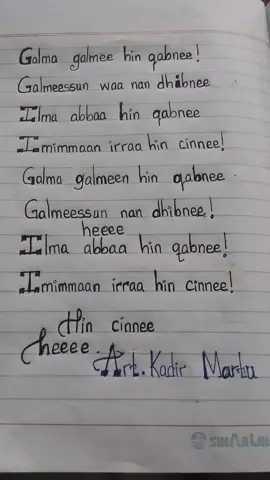 Galma galmee hin qabnee!
Galmeessun waa nan dhibnee
Ilma abbaa hin qabnee
Imimmaan irraa hin cinnee!
Galma galmeen hin qabnee.
Galmeessun nan dhibnee!
heeee
Ilma abbaa hin qabnee!
Imimmaan irraa hin cinnee!
Hin cinnee
heeee.
Art. Kadir Martu